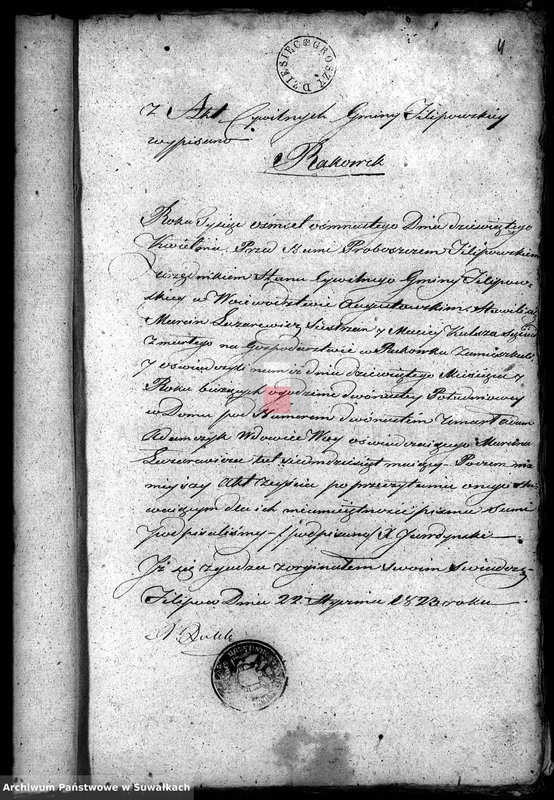 4
DZIESIĘC GROSZY
Z Akt Cywilnych Gminy Filipowskiey
wypisano
Rakowek
Roku Tysiąc ośmset ośmnastego Dnia dziewiątego
Kwietnia. Przed Nami Proboszczem Filipowskiem
Urzędnikiem Stanu Cywilnego Gminy Filipow-
skiey w Woiewodztwie Augustowskim, Stawili się
Marcin Łazarewicz Siestrzan y Maciey Kulsza sąsiad
Zmarłego na Gospodarstwie w Rakowku Zamieszkali
y oswiadczyli nam iż dnia dziewiątego Miesiąca y
Roku bieżących o godzinie dwónastey Południowey
w Domu pod Numerem dwónastem Umarł Adam
Adamczyk Wdowiec Wuy oswiadczaiącego Marcina
Łazarewicza lat siedmdziesiąt maiący. Poczem ni-
nieyszy Akt Zeyścia po przeczytaniu onego sta-
waiącym dla ich nieumieiętności pisma sami
podpisaliśmy — (podpisany) X Jurdynski
Iż się zgadza z orginałem swoim swiadczę
Filipow Dnia 22. Stycznia 1823 roku
Archiwum Państwowe w Suwałkach